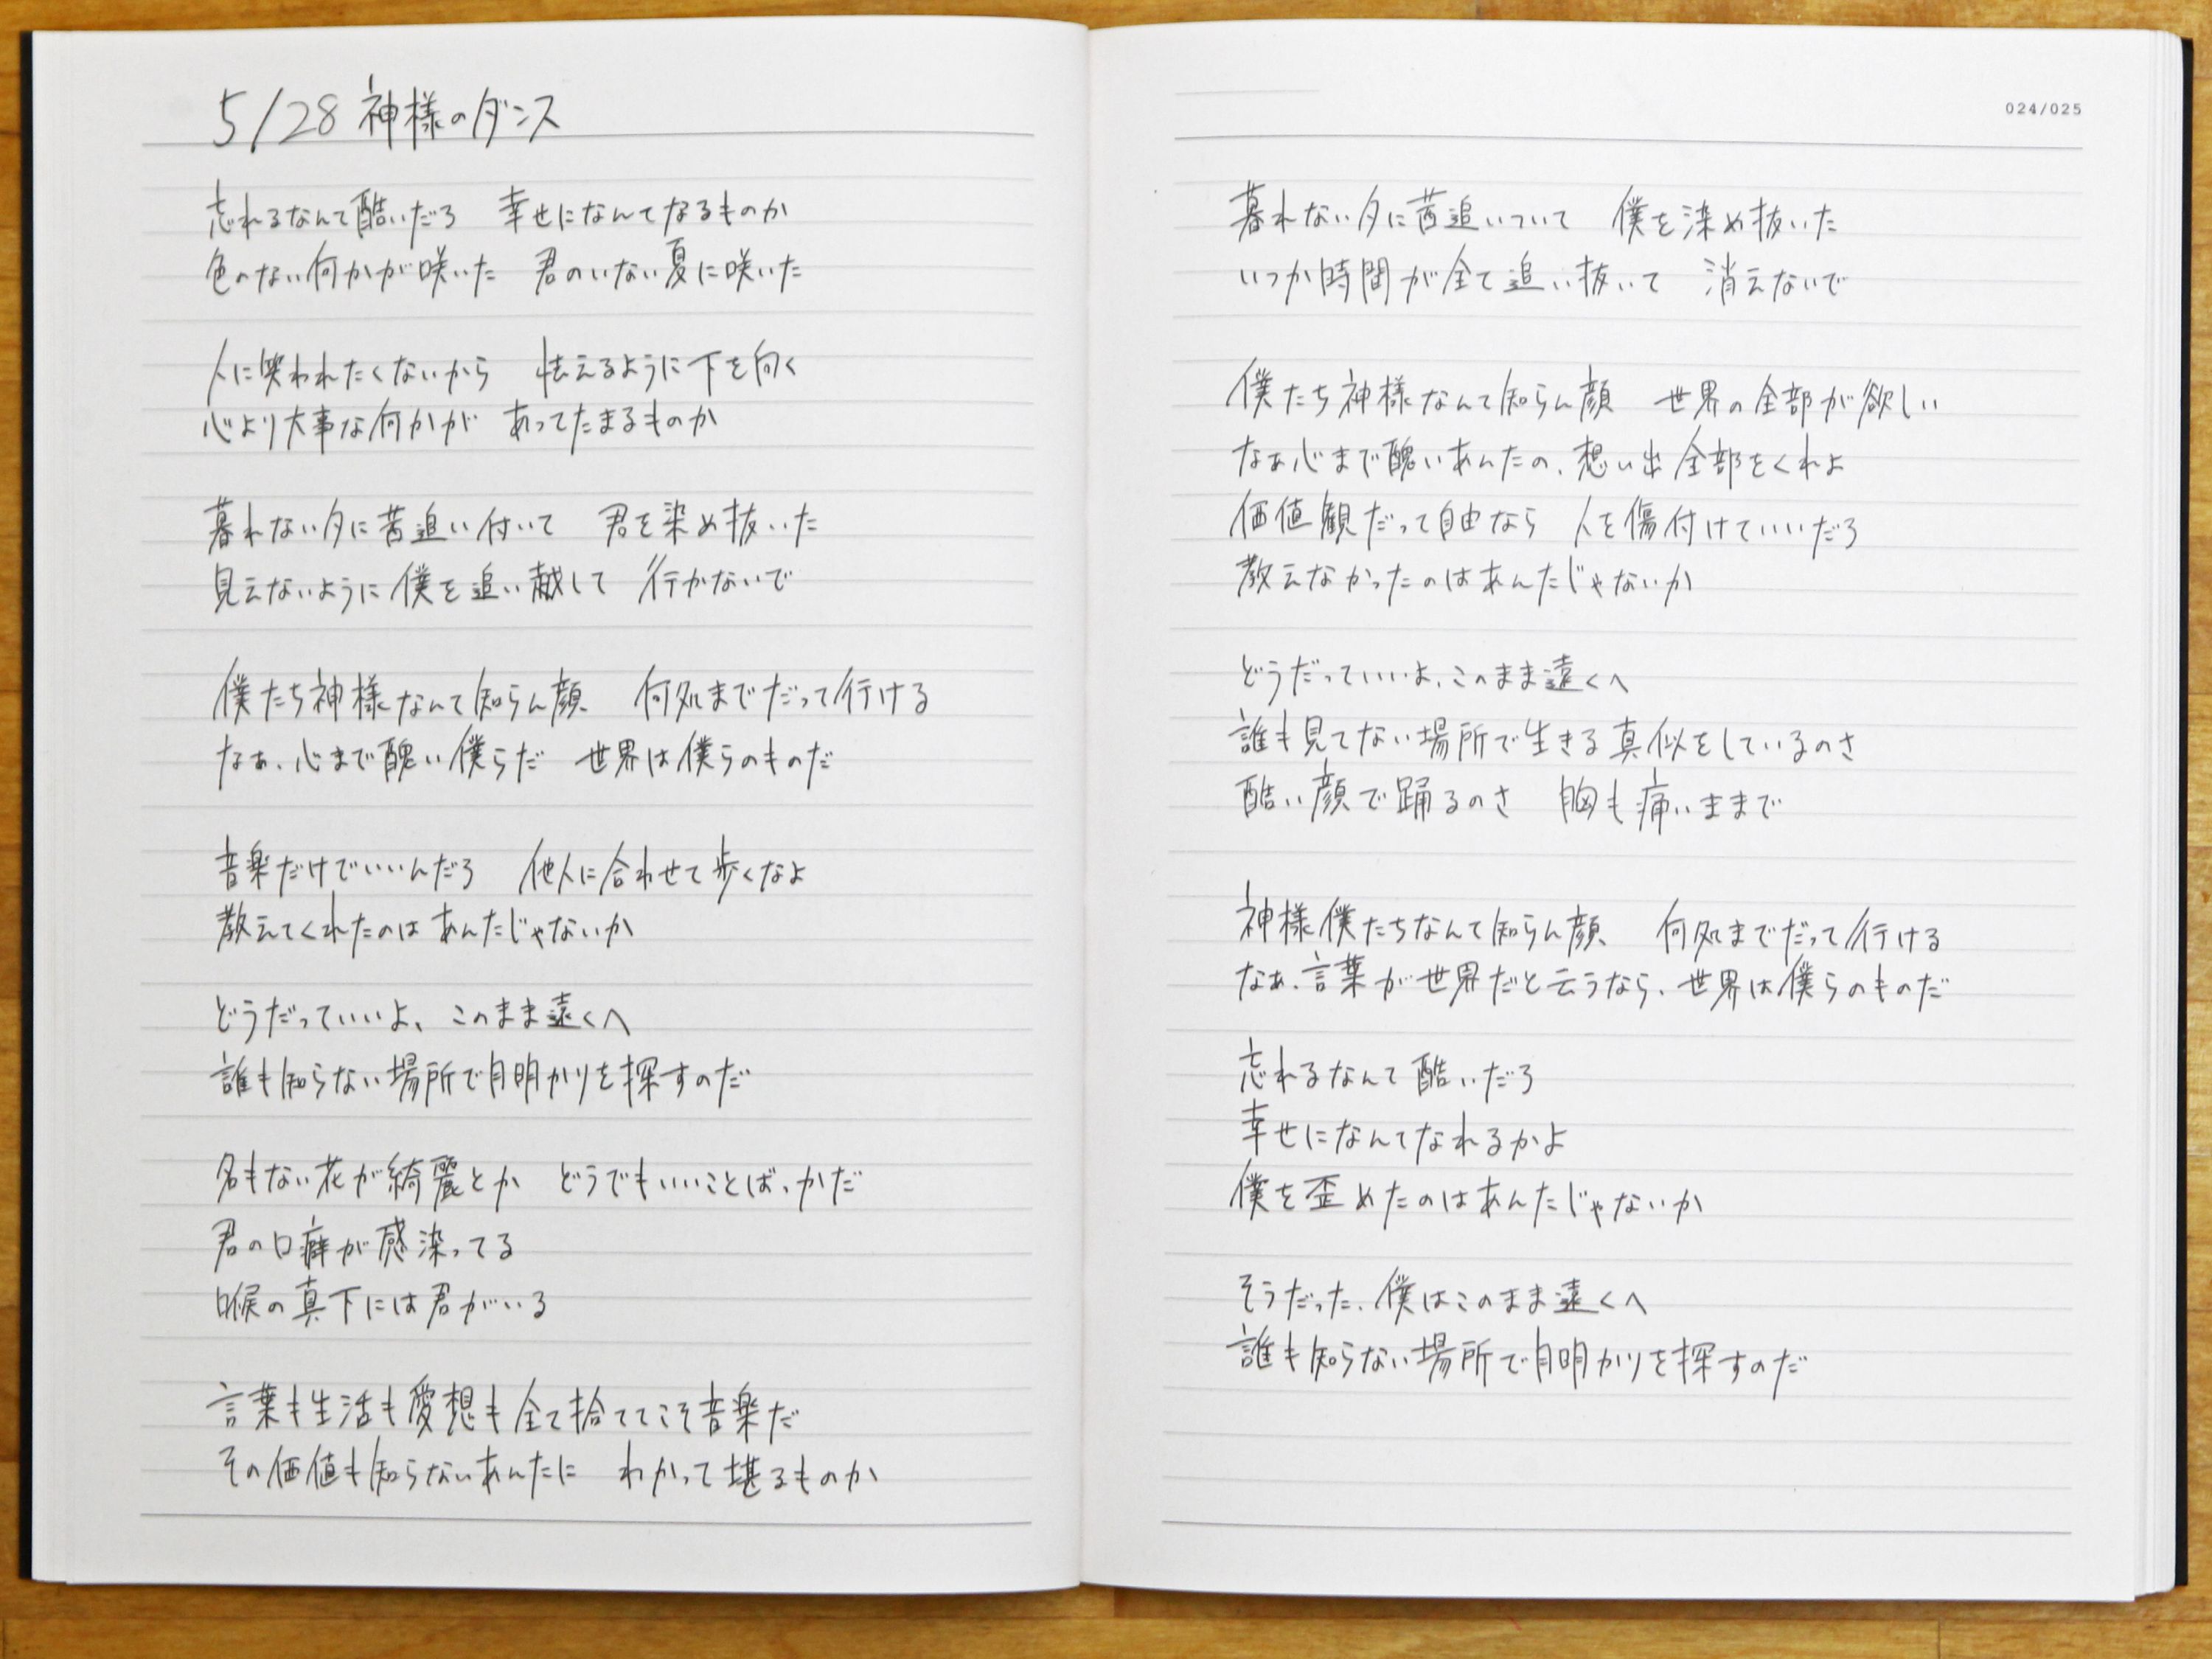 5/28 神様のダンス
忘れるなんて酷いだろ　幸せになんてなるものか
色のない何かが咲いた　君のいない夏に咲いた
人に笑われたくないから　怯えるように下を向く
心より大事な何かが　あってたまるものか
暮れない夕に茜追い付いて　君を染め抜いた
見えないように僕を追い越して　行かないで
僕たち神様なんて知らん顔、　何処までだって行ける
なぁ、心まで醜い僕らだ　世界は僕らのものだ
音楽だけでいいんだろ　他人に合わせて歩くなよ
教えてくれたのはあんたじゃないか
どうだっていいよ、このまま遠くへ
誰も知らない場所で月明かりを探すのだ
名もない花が綺麗とか　どうでもいいことばっかだ
君の口癖が感染ってる
喉の真下には君がいる
言葉も生活も愛想も全て捨ててこそ音楽だ
その価値も知らないあんたに　わかって堪るものか
024/025
暮れない夕に茜追いついて　僕を染め抜いた
いつか時間が全て追い抜いて　消えないで
僕たち神様なんて知らん顔　世界の全部が欲しい
なぁ心まで醜いあんたの、想い出全部をくれよ
価値観だって自由なら　人を傷付けていいだろ
教えなかったのはあんたじゃないか
どうだっていいよ、このまま遠くへ
誰も見てない場所で生きる真似をしているのさ
酷い顔で踊るのさ　胸も痛いままで
神様、僕たちなんて知らん顔、　何処までだって行ける
なぁ、言葉が世界だと云うなら、世界は僕らのものだ
忘れるなんて酷いだろ
幸せになんてなれるかよ
僕を歪めたのはあんたじゃないか
そうだった、僕はこのまま遠くへ
誰も知らない場所で月明かりを探すのだ